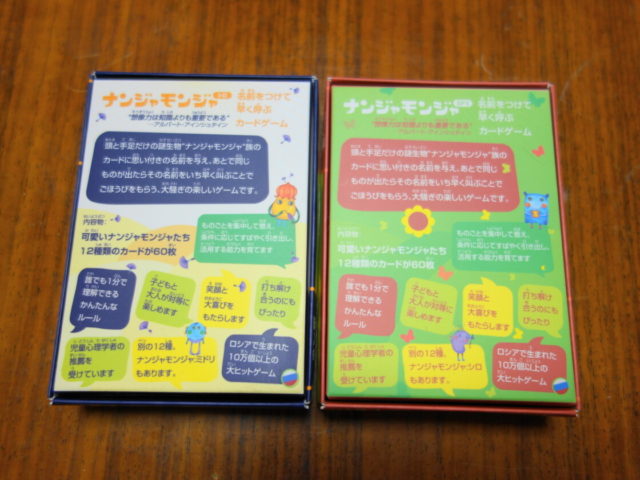 ナンジャモンジャ シロ
名前をつけて
早く呼ぶ
カードゲーム
"想像力は知識よりも重要である"
アルバート・アインシュタイン
頭と手足だけの謎生物"ナンジャモンジャ"族の
カードに思い付きの名前を与え、あとで同じ
ものが出たらその名前をいち早く叫ぶことで
ごほうびをもらう、大騒ぎの楽しいゲームです。
内容物:
可愛いナンジャモンジャたち
12種類のカードが60枚
ものごとを集中して覚え、
条件に応じてすばやく引き出し、
活用する能力を育てます
誰でも1分で
理解できる
かんたんな
ルール
子どもと
大人が対等に
楽しめます
笑顔と
大喜びを
もたらします
打ち解け
合うのにも
ぴったり
児童心理学者の
推薦を
受けています
別の12種、
ナンジャモンジャ・ミドリ
もあります。
ロシアで生まれた
10万個以上の
大ヒットゲーム
ナンジャモンジャ ミドリ
名前をつけて
早く呼ぶ
カードゲーム
"想像力は知識よりも重要である"
アルバート・アインシュタイン
頭と手足だけの謎生物"ナンジャモンジャ"族の
カードに思い付きの名前を与え、あとで同じ
ものが出たらその名前をいち早く叫ぶことで
ごほうびをもらう、大騒ぎの楽しいゲームです。
内容物:
可愛いナンジャモンジャたち
12種類のカードが60枚
ものごとを集中して覚え、
条件に応じてすばやく引き出し、
活用する能力を育てます
誰でも1分で
理解できる
かんたんな
ルール
子どもと
大人が対等に
楽しめます
笑顔と
大喜びを
もたらします
打ち解け
合うのにも
ぴったり
児童心理学者の
推薦を
受けています
別の12種、
ナンジャモンジャ・シロ
もあります。
ロシアで生まれた
10万個以上の
大ヒットゲーム